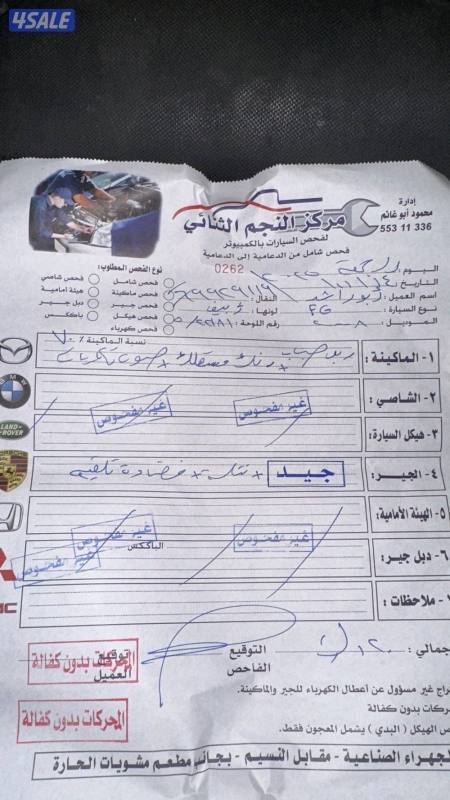 4SALE
إدارة
محمود أبو غانم
553 11 336
مركز النجم الثنائي
لفحص السيارات بالكمبيوتر
فحص شامل من الدعامية إلى الدعامية
0262
اليوم : الجمعة
التاريخ :
اسم العميل :
النقال :
نوع السيارة : FG
لونها :
الموديل : ٢٠٠٨
رقم اللوحة :
نوع الفحص المطلوب:
فحص شامل
فحص شاصي
فحص ماكينة
هيئة أمامية
فحص جير
دبل جير
فحص هيكل
باككس
فحص كهرباء
نسبة الماكينة ٪ ٧٠
١- الماكينة :
٢- الشاصي :
غير مفحوص
غير مفحوص
٣- هيكل السيارة:
LAND-ROVER
٤- الجير : جيد
٥- الهيئة الأمامية:
غير مفحوص
غير مفحوص
الباككس
غير مفحوص
٦- دبل جير :
ملاحظات :
جمالي : ١٢٠
التوقيع
الفاحص
توقيع
العميل
المحركات بدون كفالة
المحركات بدون كفالة
راج غير مسؤول عن أعطال الكهرباء للجير والماكينة.
حركات بدون كفالة
ص الهيكل ( البدي ) يشمل المعجون فقط.
لجهراء الصناعية - مقابل النسيم - بجانب مطعم مشويات الحارة